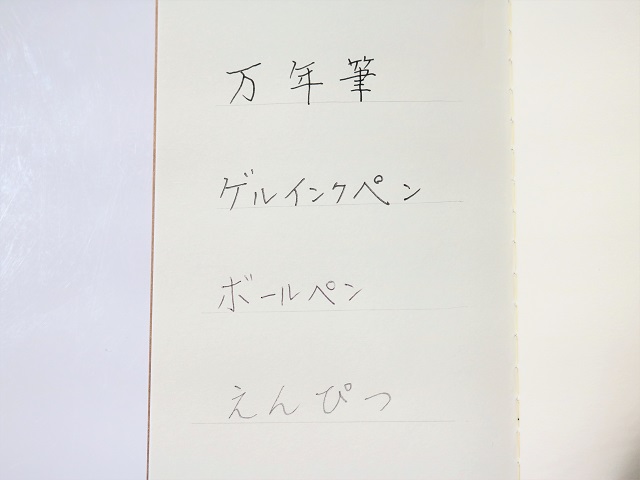 万年筆
ゲルインクペン
ボールペン
えんぴつ